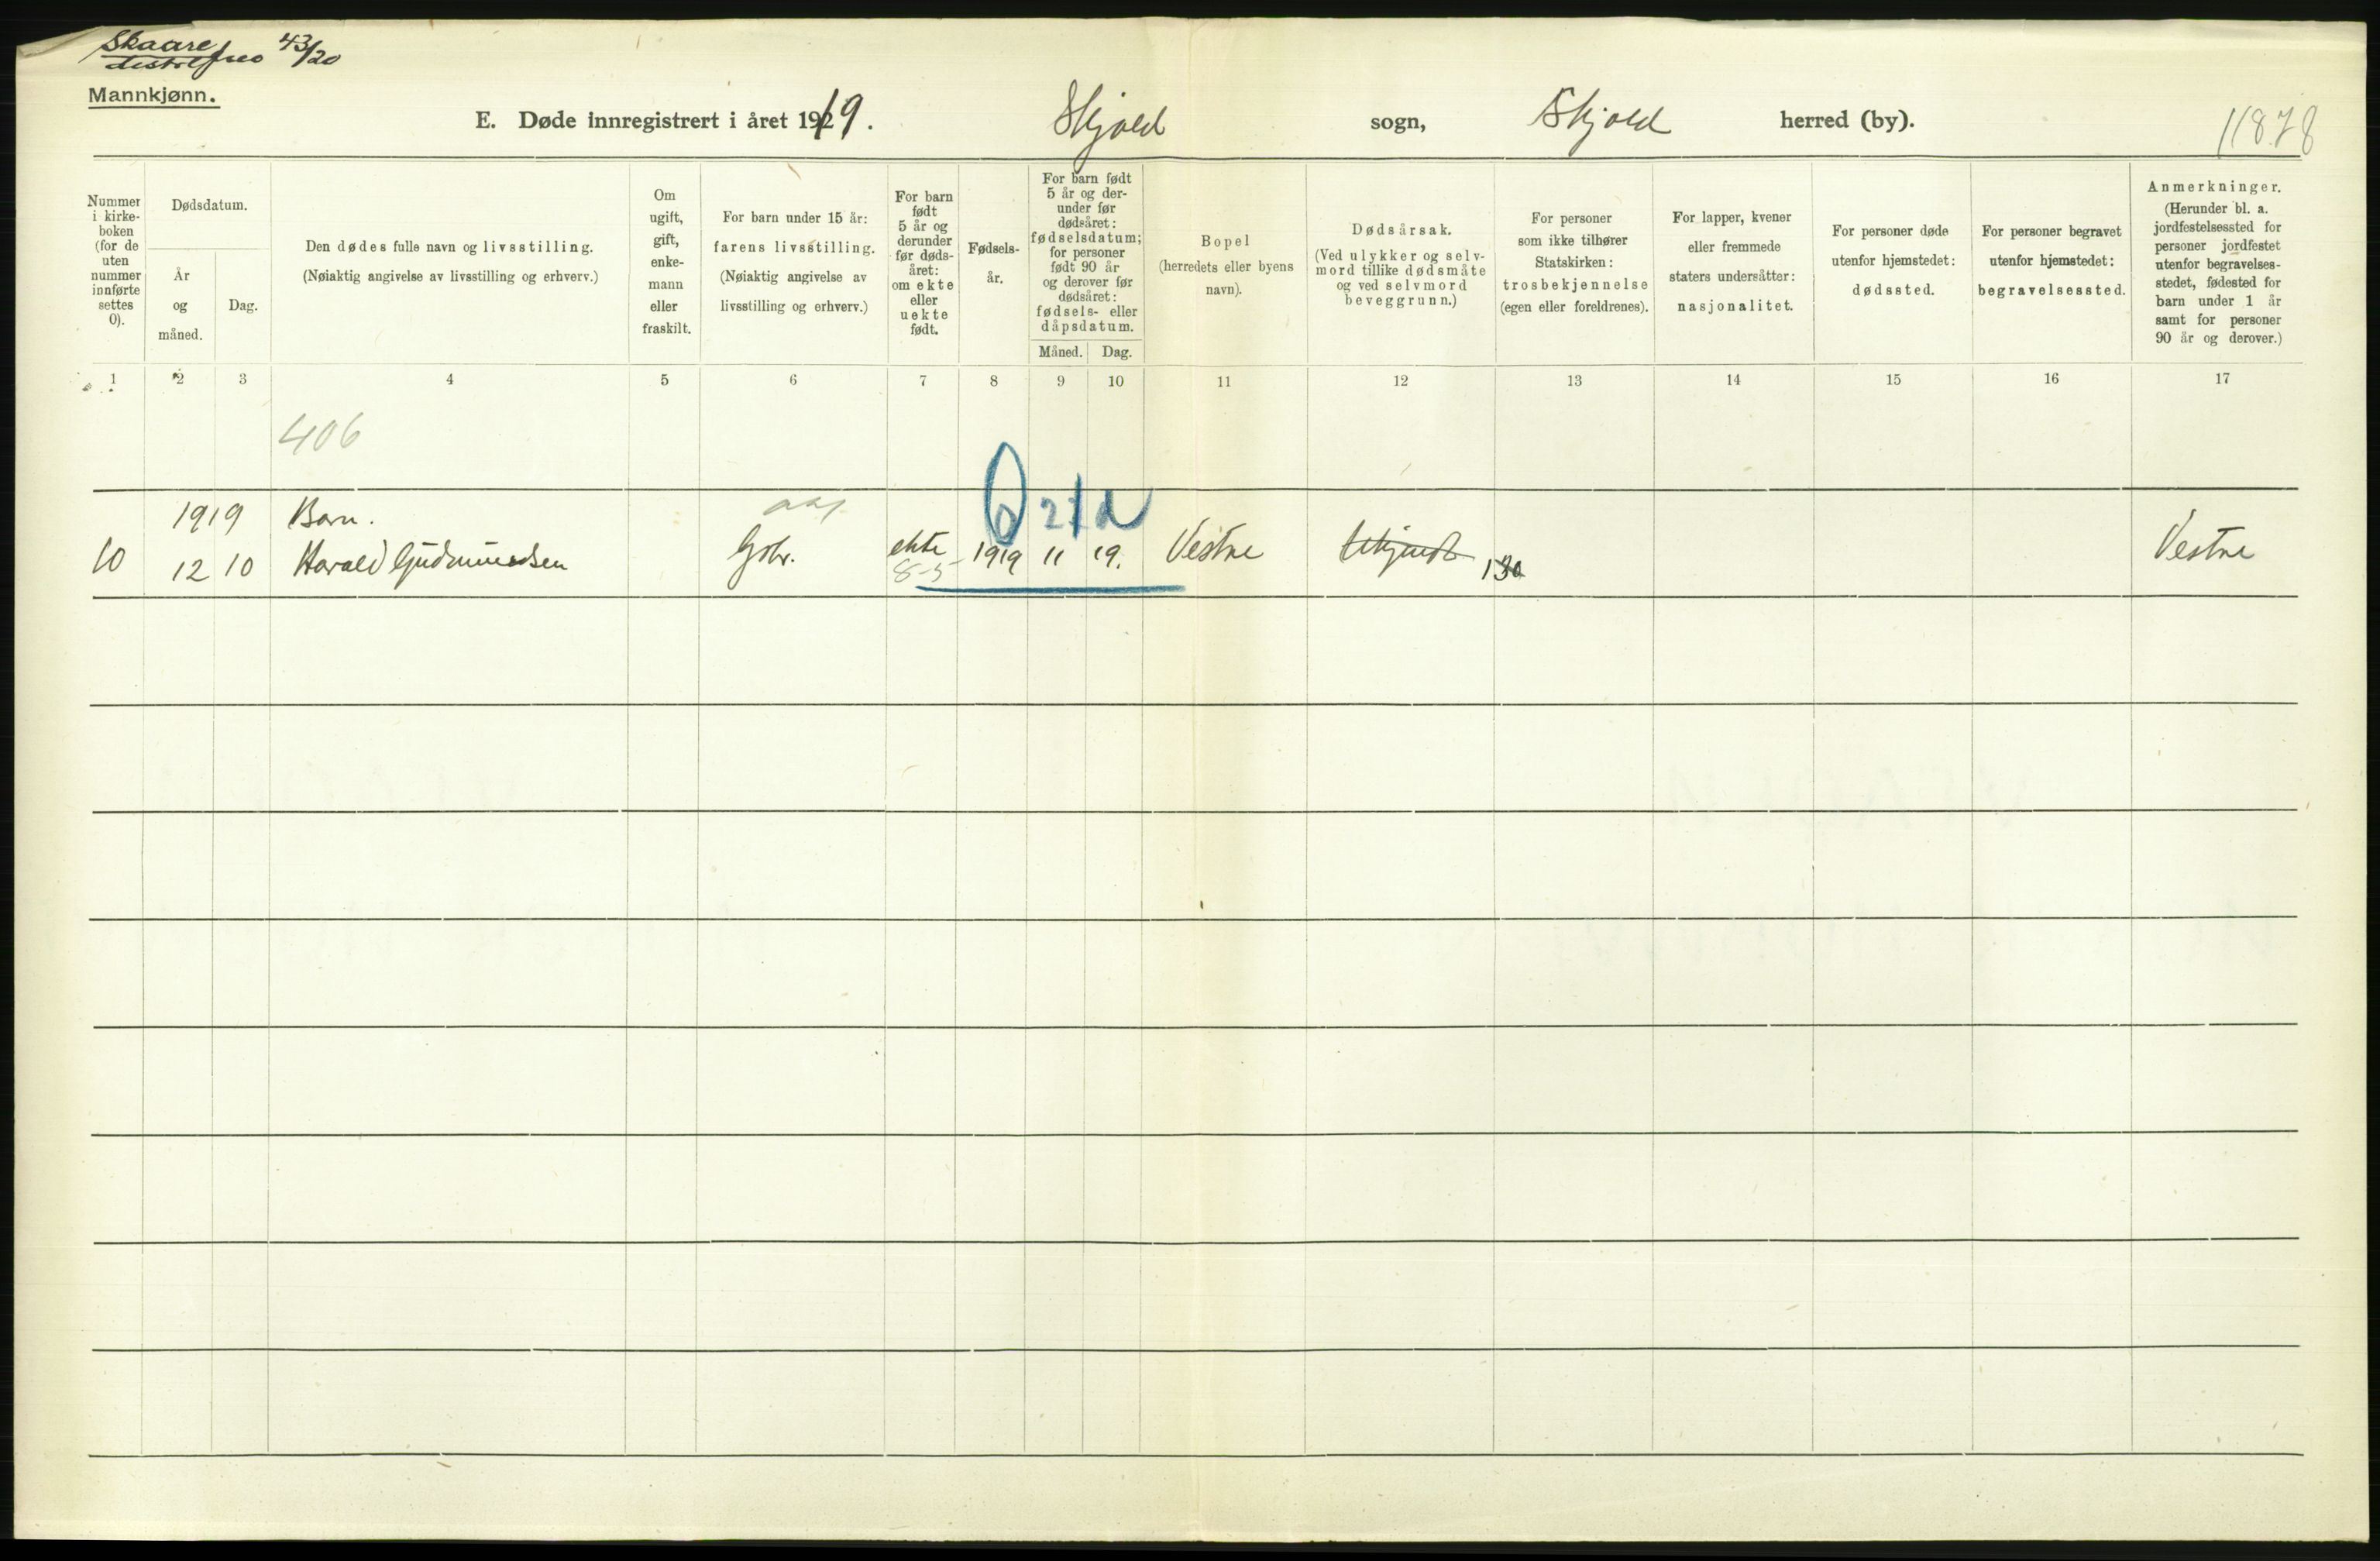 Skaare
43/20
Mannkjønn.
E. Døde innregistrert i året 1919. Skjold sogn, Skjold herred (by).
11878
Nummer i kirke-boken (for de uten nummer innførte settes 0).
Dødsdatum.
År og måned.
Dag.
Den dødes fulle navn og livsstilling.
(Nøiaktig angivelse av livsstilling og erhverv.)
Om ugift, gift, enke-mann eller fraskilt.
For barn under 15 år:
farens livsstilling.
(Nøiaktig angivelse av livsstilling og erhverv.)
For barn født 5 år og derunder før døds-året: om ekte eller uekte født.
Fødsels-år.
For barn født 5 år og der-under før dødsåret: fødselsdatum; for personer født 90 år og derover før dødsåret: fødsels- eller dåpsdatum.
Måned. Dag.
Bopel
(herredets eller byens navn).
Dødsårsak.
(Ved ulykker og selv-mord tillike dødsmåte og ved selvmord beveggrunn.)
For personer som ikke tilhører Statskirken:
trosbekjennelse
(egen eller foreldrenes).
For lapper, kvener eller fremmede staters undersåtter:
nasjonalitet.
For personer døde utenfor hjemstedet:
dødssted.
For personer begravet utenfor hjemstedet:
begravelsessted.
Anmerkninger.
(Herunder bl. a. jordfestelsessted for personer jordfestet utenfor begravelses-stedet, fødested for barn under 1 år samt for personer 90 år og derover.)
1 2 3 4 5 6 7 8 9 10 11 12 13 14 15 16 17
406
1919 Barn. 21 d
10 12 10 Harald Gudmundsen Gbr. ekte 1919 11 19. Vestre Ukjendt 130 Vestre
8-5